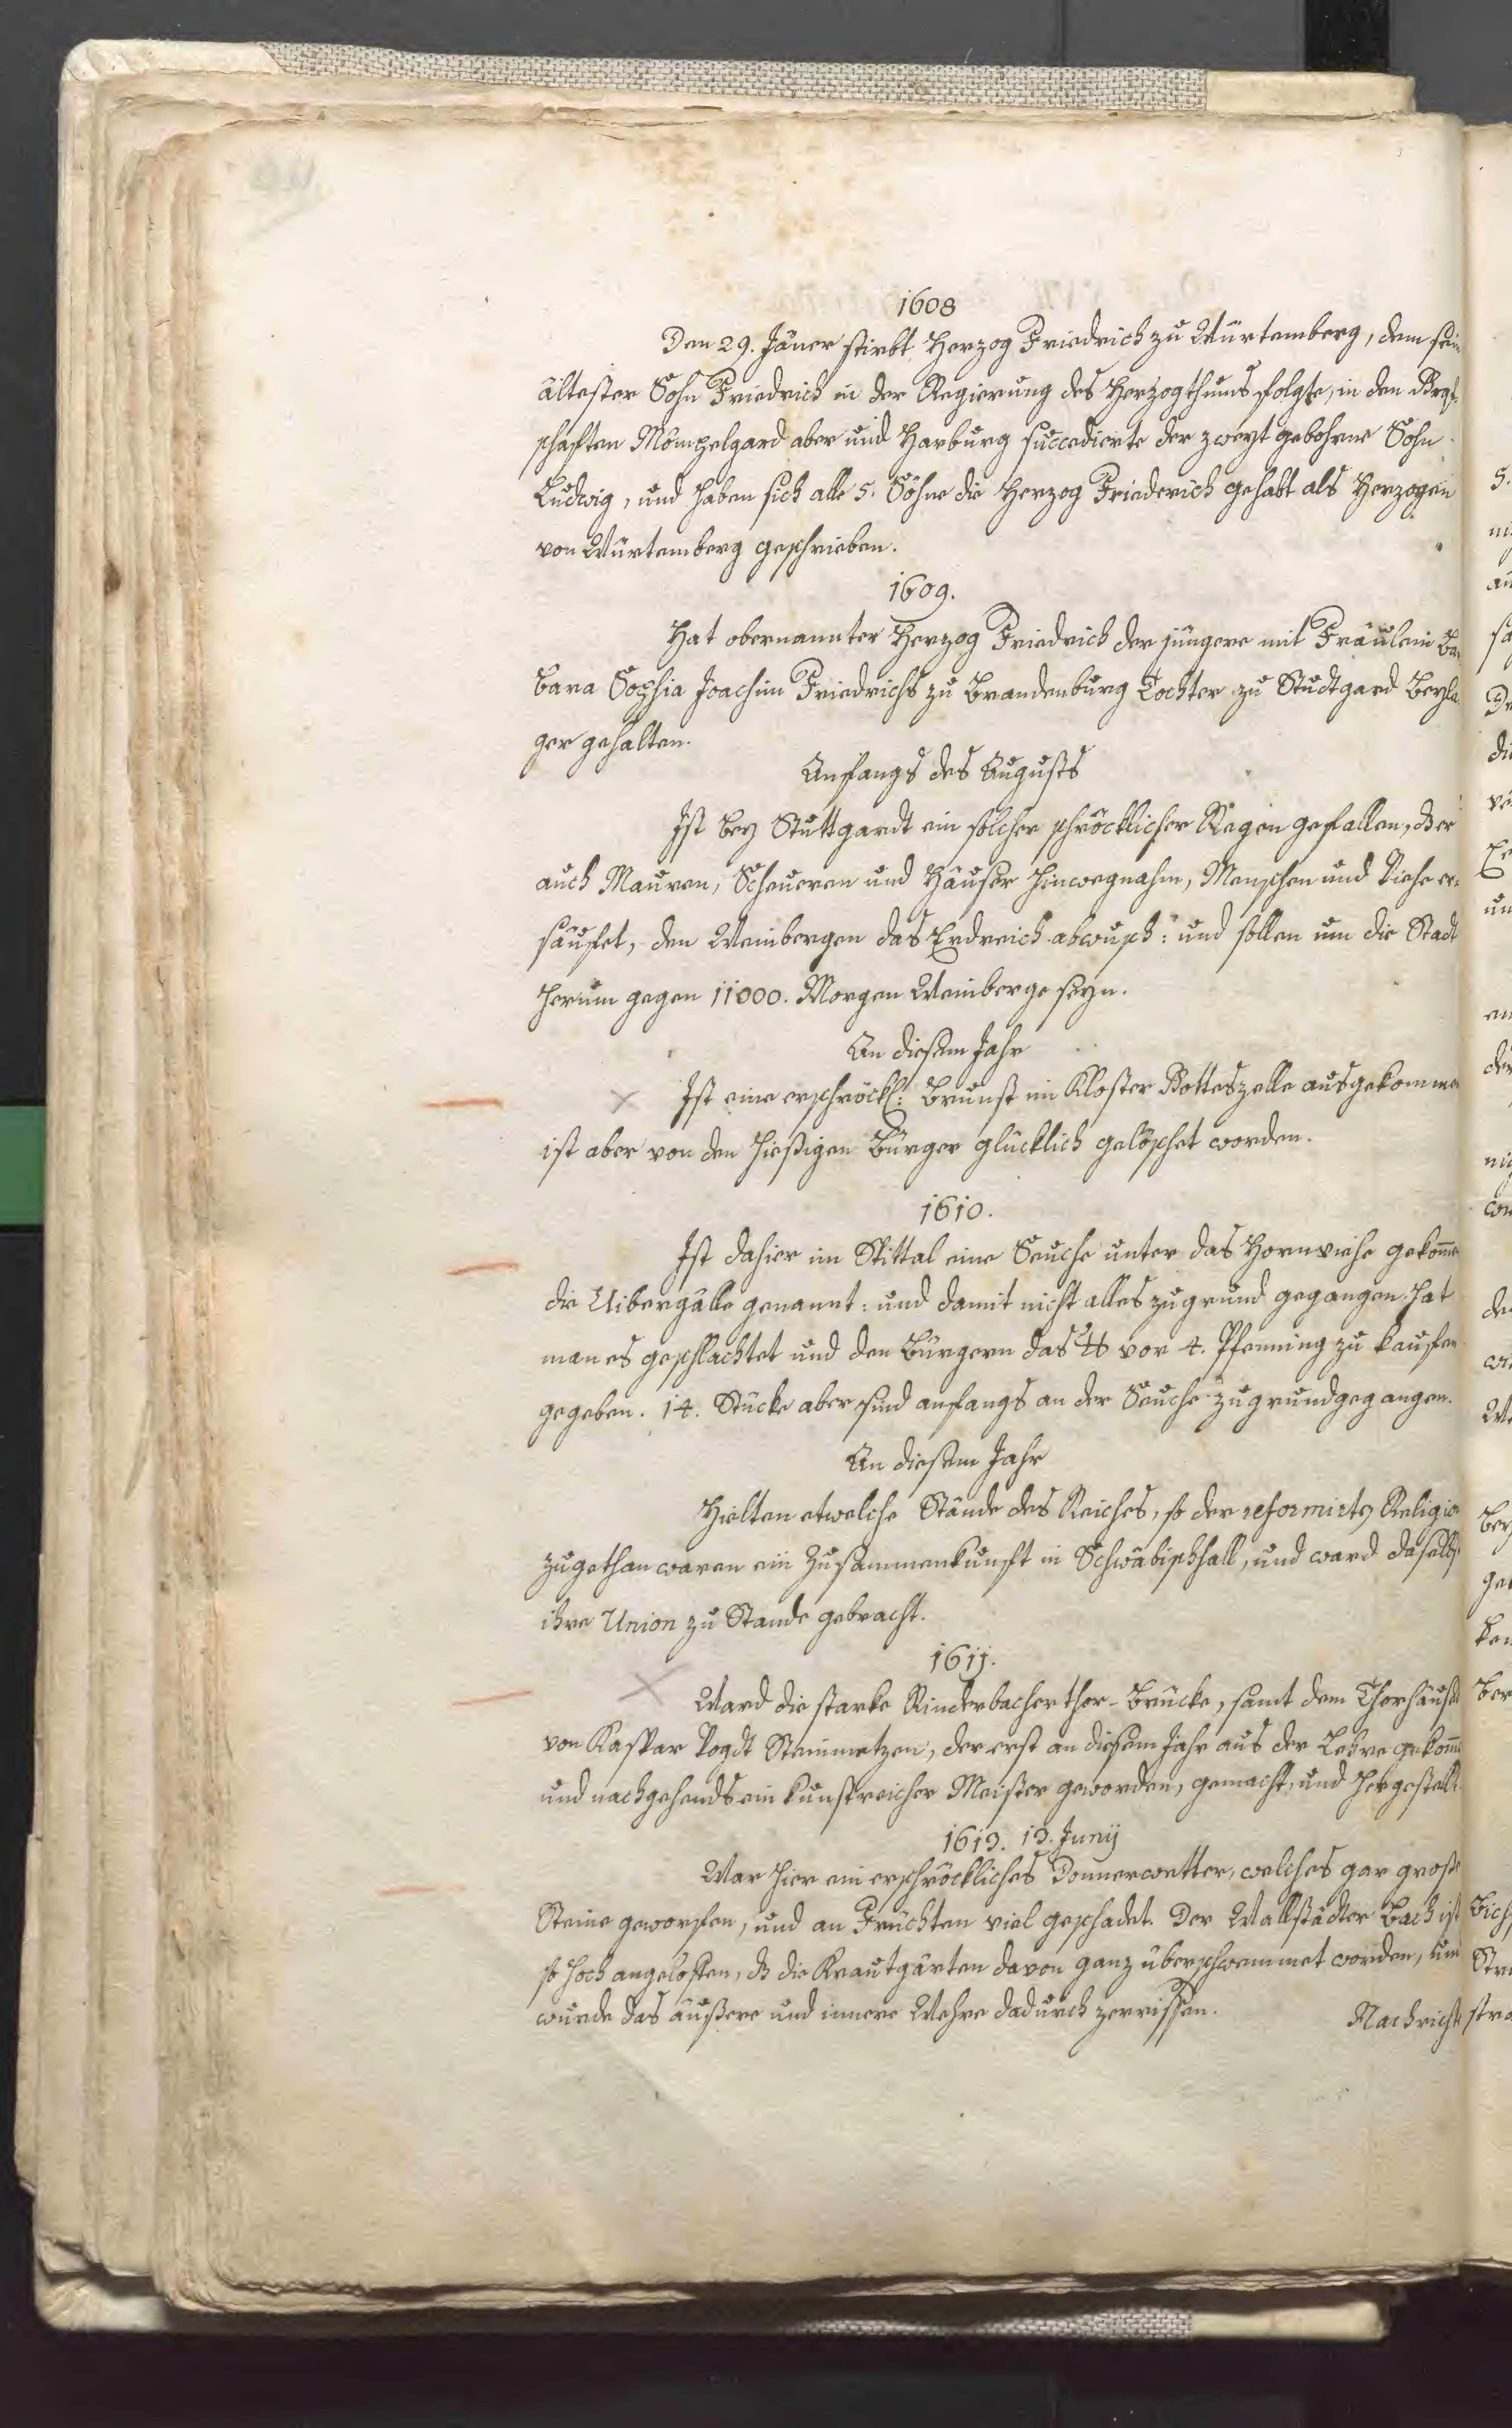 1608
Den 29. Jäner stirbt Herzog Friedrich zu Würtemberg, dem sein
ältester Sohn Friedrich in der Regierung des Herzogthums folgte, in den Graf-
schaften Mömpelgard aber und Harburg succedierte der zweyt gebohrne Sohn
Ludwig, und haben sich alle 5. Söhne die Herzog Friederich gehabt als Herzogen
von Würtemberg geschrieben.
1609.
Hat obernannter Herzog Friedrich der jüngere mit Fräulein Bar-
bara Sophia Joachim Friedrichs zu Brandenburg Tochter zu Studtgard Beyla-
ger gehalten.
Anfangs des Augusts
Ist bey Stuttgardt ein solcher schröcklicher Regen gefallen, der
auch Mauren, Scheueren und Häuser hinwegnahm, Menschen und Viehe er-
säufet, den Weinbergen das Erdreich abwusch: und sollen um die Stadt
herum gegen 11000. Morgen Weinberge seyn.
An diesem Jahr
Ist eine erschröckl: Brunst im Kloster Gotteszelle ausgekommen
ist aber von den hiesigen Bürger glücklich gelöschet worden.
1610.
Ist dahier im Spittal eine Seuche unter das Hornviehe gekomme
die Uibergälle genannt: und damit nicht alles zugrund gegangen hat
man es geschlachtet und den Bürgern das ℔ vor 4. Pfenning zu kaufen
gegeben. 14. Stücke aber sind anfangs an der Seuche zugrundgegangen.
An diesem Jahr
Hielten etwelche Stände des Reiches, so der reformirten Religion
zugethan waren ein Zusammenkunft in Schwäbischhall, und ward daselbst
ihre Union zu Stande gebracht.
1611.
Ward die starke Rinderbacherthor-Brücke, samt dem Thorhäusl
von Kaspar Vogdt Steinmetzen, der erst an diesem Jahr aus der Lehre gekomme
und nachgehends ein kunstreicher Meister geworden, gemacht, und hergestellt.
1613. 13. Junÿ
War hier ein erschröckliches Donnerwetter, welches gar große
Steine geworfen, und an Früchten viel geschadet. Der Wallstädter Bach ist
so hoch angeloffen, dß die Krautgärten davon ganz überschwemmet worden, und
wurde das äußere und innere Wehre dadurch zerrissen.
Nachricht